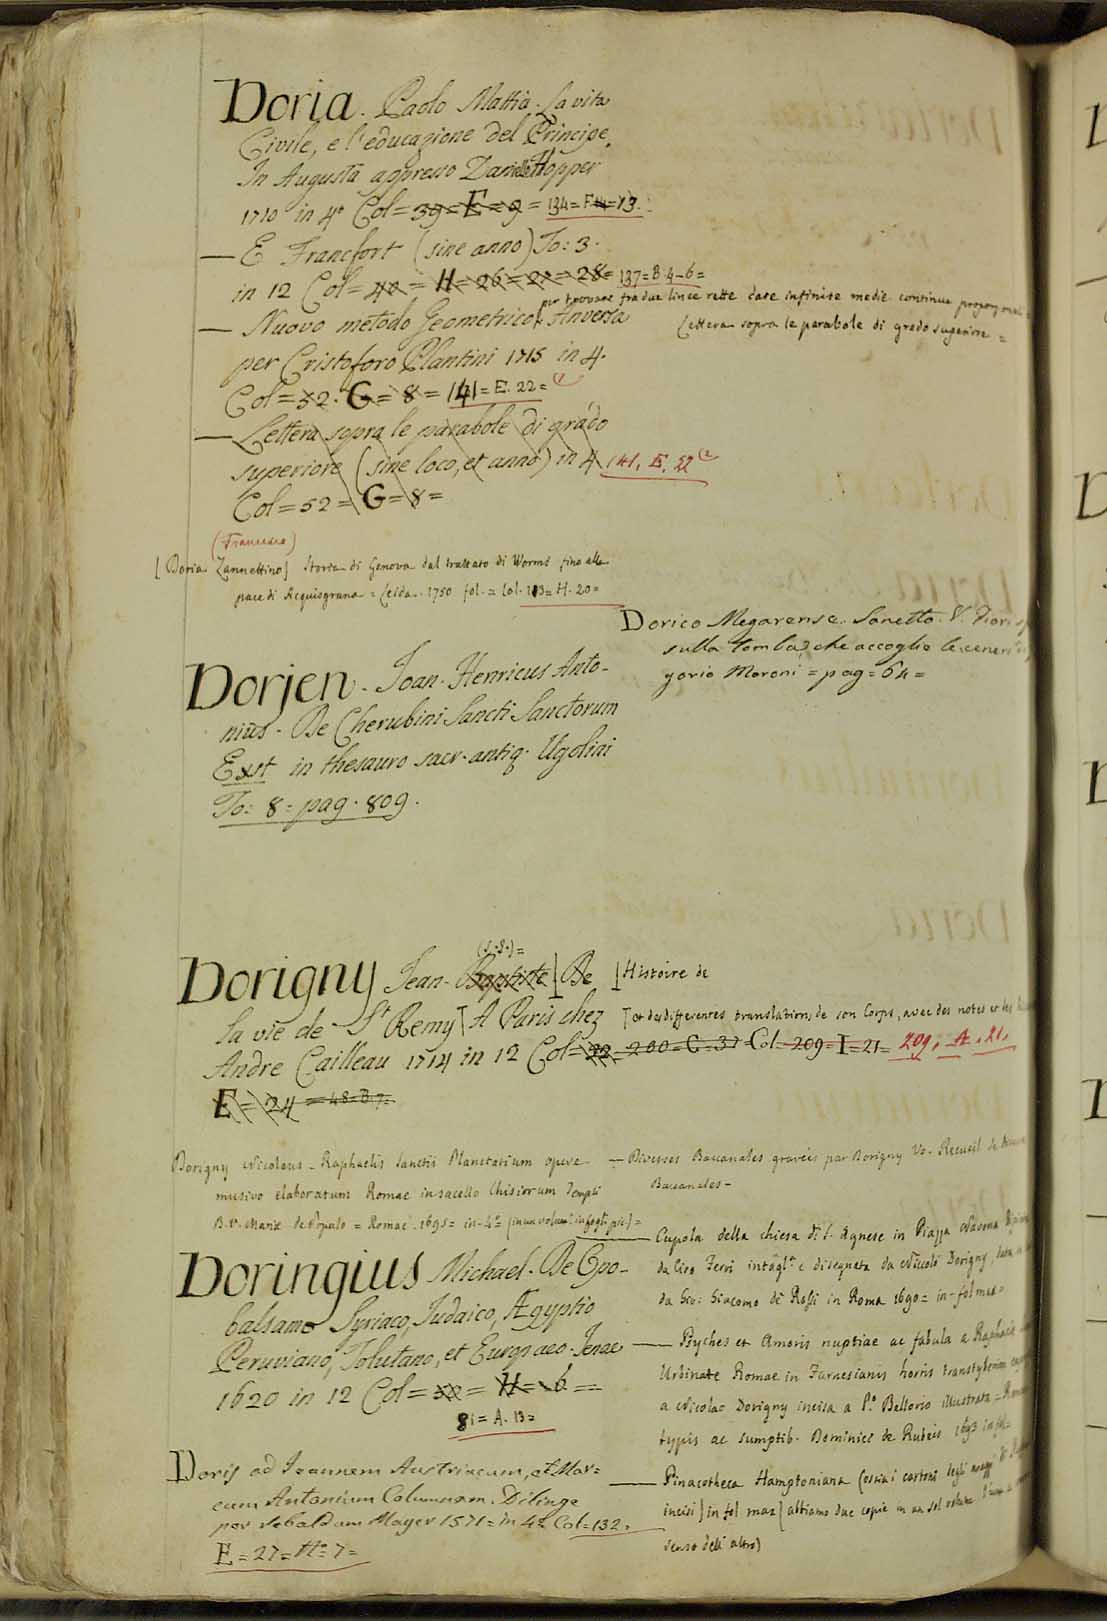 Doria. Paolo Mattia. La vita
Civile, e l'educazione del Principe.
In Augusta appresso Daniello Hopper
1710 in 4º Col= 39= E= 9= 134= F. 14= 13.
— E Francfort (sine anno) To: 3.
in 12 Col= 40= H= 26= 27= 28= 137= B. 4-6=
— Nuovo metodo Geometrico Anversa
per trovare fra due linee rette date infinite medie continue
Lettera sopra le parabole di grado superiore =
per Cristoforo Plantini 1715 in 4.
Col= 52. G= 8= 141= E. 22= (1
— Lettera sopra le parabole di grado
superiore (sine loco, et anno) in 4 141. E. 22 (2
Col= 52= G= 8=
(Francesco)
[Doria Zannettino] Storia di Genova dal trattato di Worms fino alla
pace di Acquisgrana = Leida. 1750 fol. = Col. 113= H. 20=
Dorico Megarense. Sonetto. V. Fiori
sulla tomba che accoglie le ceneri
gorio Moroni = pag= 64=
Dorjen. Joan. Henricus Anto-
nius. De Cherubini Sancti Sanctorum
Exst in thesauro sacr. antiq. Ugolini
To: 8= pag. 809.
(S. J.)=
Dorigny Jean-Baptiste] De [Histoire de
la vie de St Remy] A Paris chez [et des differentes translations de son Corps, avec des notes et
Andre Cailleau 1714 in 12 Col= 22= 200= C= 37 Col= 209= I= 21= 209. A. 21.
E= 24= 48= B 7=
Dorigny Nicolaus - Raphaelis Sanctii Planetarium opere
musivo elaboratum Romae in sacello Chisiorum Templi
B. V. Mariae de Populo = Romae. 1695= in-4º (in un volume in fogl. pic.)=
— Diverses Baccanales gravées par Dorigny V. Recueil de
Baccanales-
— Cupola della chiesa di S. Agnese in Piazza Navona
da Ciro Ferri intagl. e disegnata da Niccolò Dorigny,
da Gio: Giacomo de Rossi in Roma 1690= in-fol max=
Doringius Michael. De Opo-
balsamo Syriaco, Judaico, Ægyptio
Peruviano, Tolutano, et Europaeo. Jenae
1620 in 12 Col= 30= H= 6=
81= A. 13=
— Psyches et Amoris nuptiae ac fabula a Raphaele
Urbinate Romae in Farnesianis hortis transtyberim
a Nicolao Dorigny incisa a P. Bellorio illustrata =
typis ac sumptib. Dominici de Rubeis 1693 in fol=
— Pinacotheca Hamptoniana (ossia i cartoni degli arazzi di
incisi) in fol max (abbiamo due copie in un sol volume
senso dell'altro)
Doris ad Joannem Austriacum, et Mar=
cum Antonium Columnam. Dilingae
per Sebaldum Mayer 1571= in 4º Col= 132=
E= 27= Nº 7=